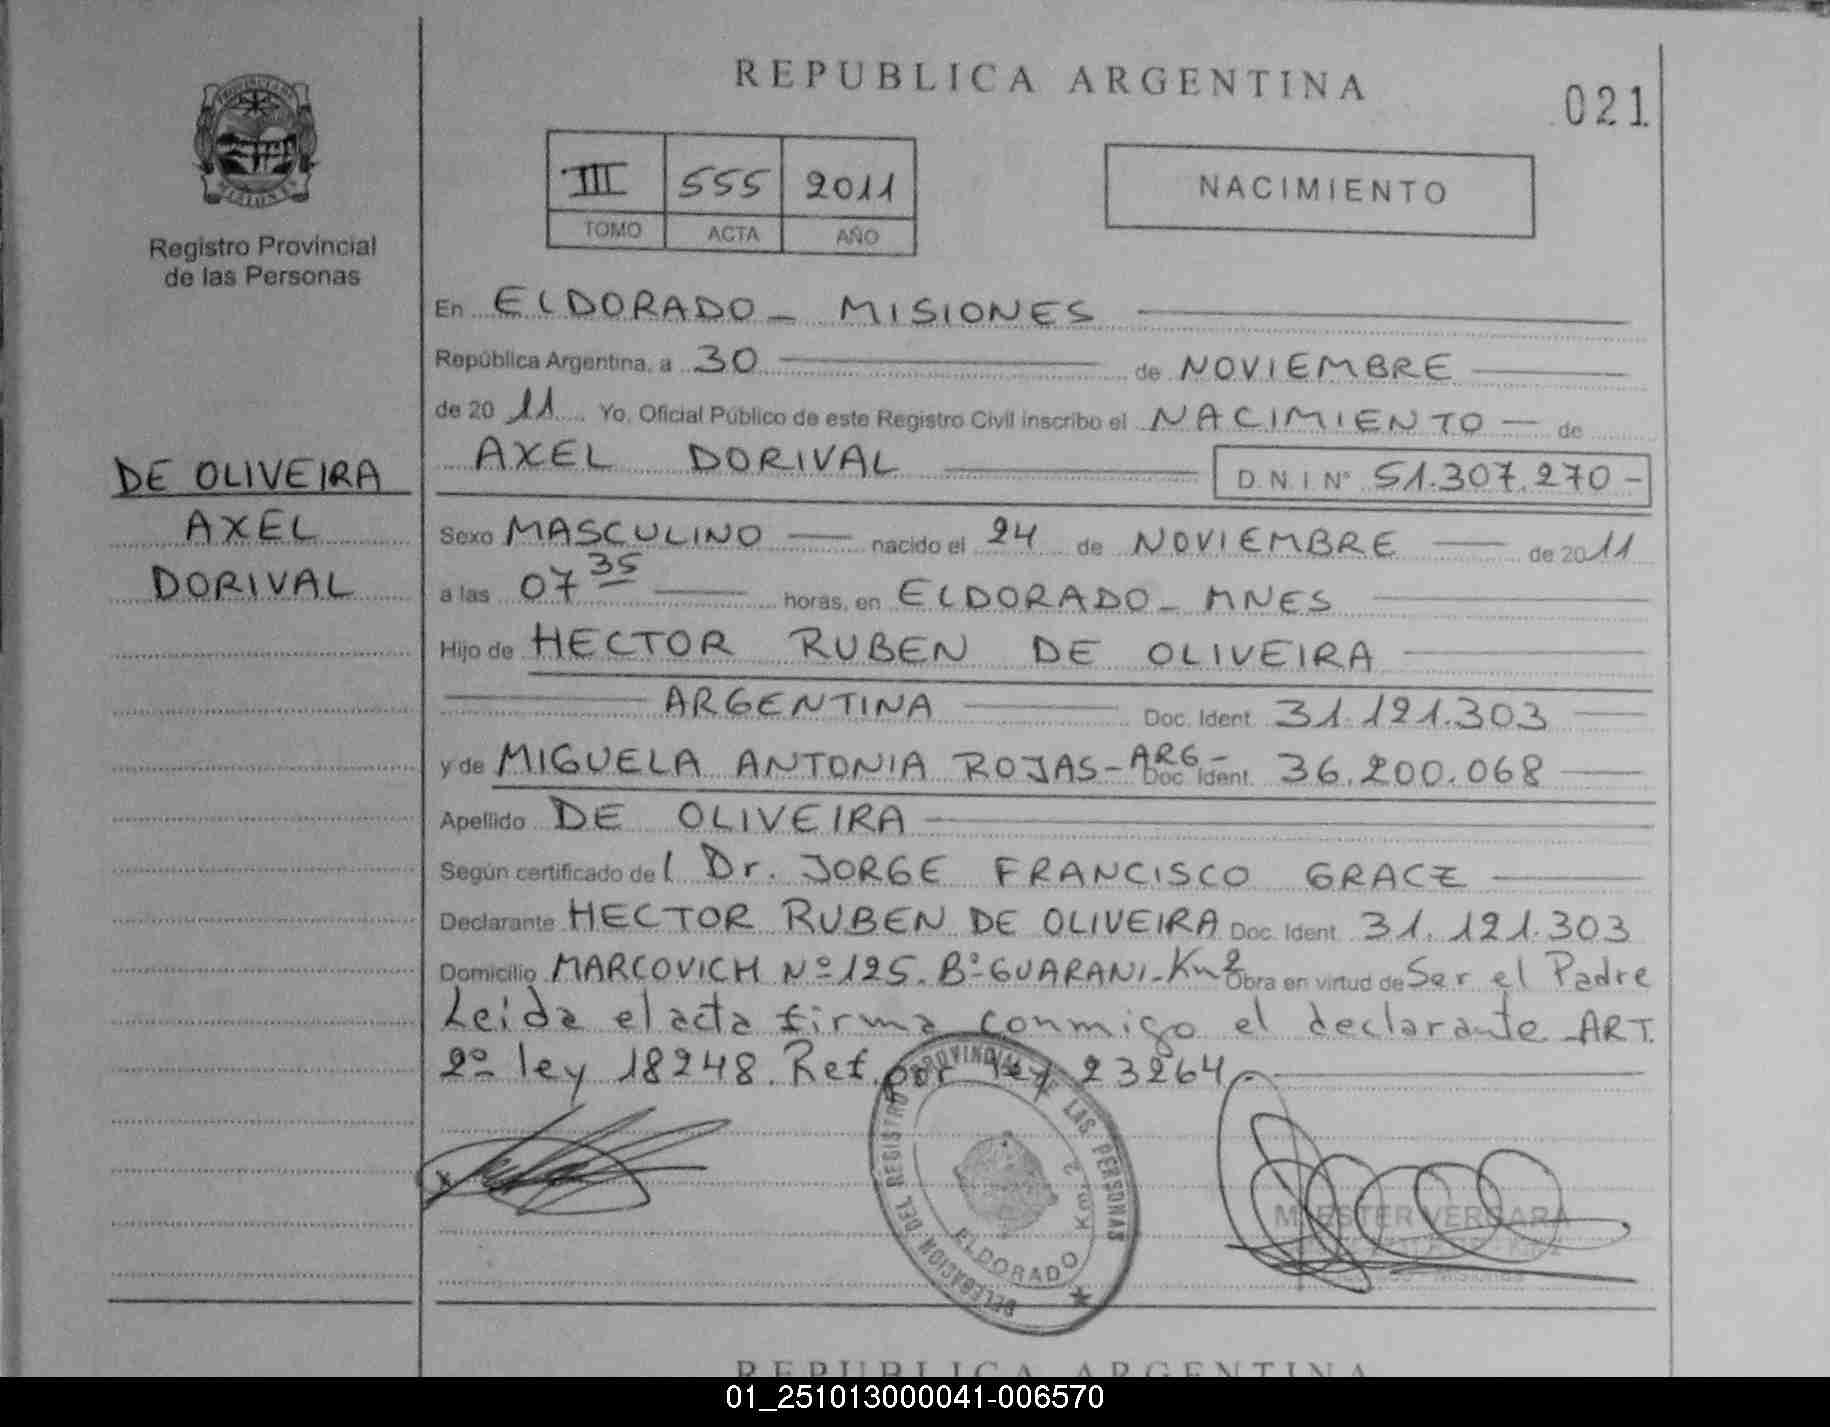 REPUBLICA ARGENTINA
021
III 555 2011
TOMO ACTA AÑO
NACIMIENTO
Registro Provincial
de las Personas
DE OLIVEIRA
AXEL
DORIVAL
En ELDORADO - MISIONES
República Argentina, a 30 de NOVIEMBRE
de 2011 Yo, Oficial Público de este Registro Civil inscribo el NACIMIENTO - de
AXEL DORIVAL D.N.I Nº 51.307.270-
Sexo MASCULINO nacido el 24 de NOVIEMBRE de 2011
a las 07 35 horas, en ELDORADO - MNES
Hijo de HECTOR RUBEN DE OLIVEIRA
ARGENTINA Doc. Ident. 31.121.303
y de MIGUELA ANTONIA ROJAS - ARG - Doc. Ident. 36.200.068
Apellido DE OLIVEIRA
Según certificado del Dr. JORGE FRANCISCO
Declarante HECTOR RUBEN DE OLIVEIRA Doc. Ident. 31.121.303
Domicilio MARCOVICH Nº 125. Bº GUARANI - Obra en virtud de Ser el Padre
Leida el acta firma conmigo el declarante ART.
2º ley 18248. Ref. por ley 23264.-
DELEGACION DEL REGISTRO PROVINCIAL DE LAS PERSONAS
ELDORADO Km. 2
VERGARA
REPUBLICA ARGENTINA
01_251013000041-006570